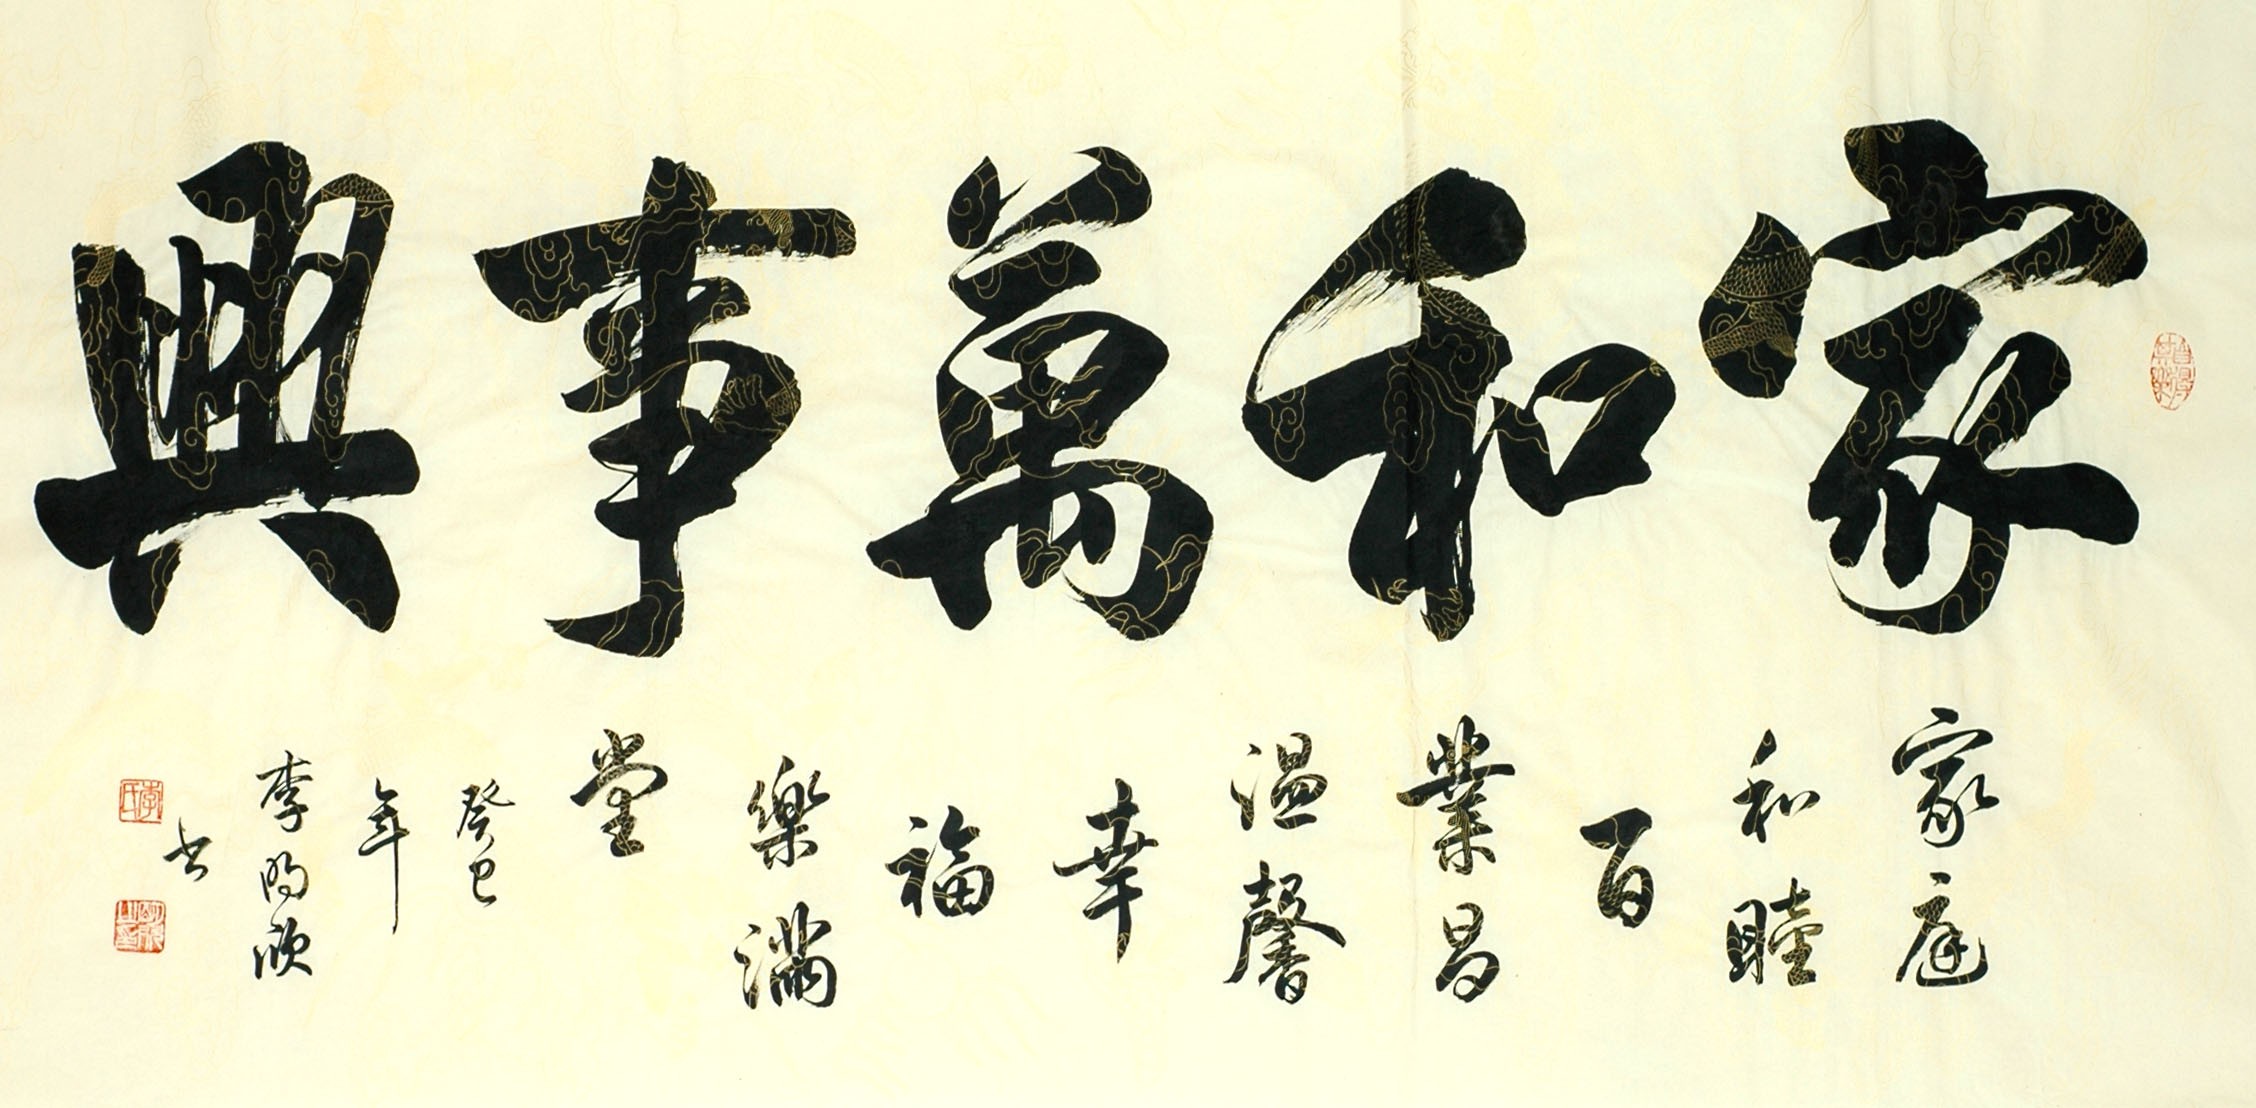 家和萬事興
家庭
和睦
百
業昌
溫馨
幸
福
樂滿
堂
癸巳
年
李明欣
书
李氏